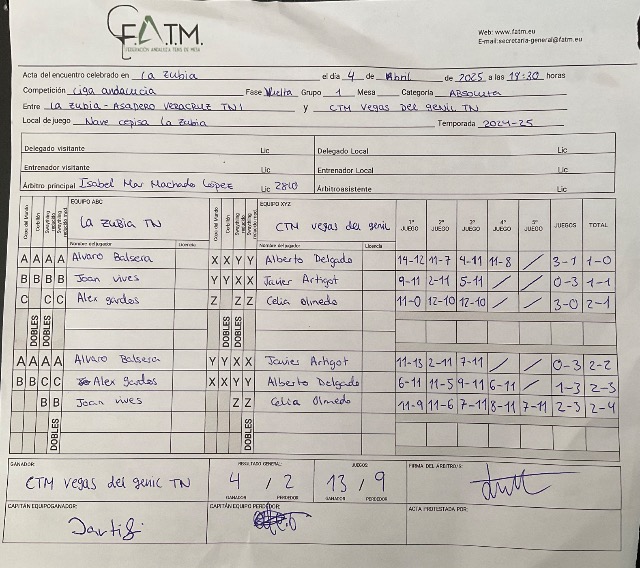 FATM.
FEDERACIÓN ANDALUZA TENIS DE MESA
Web: www.fatm.eu
E-mail:secretaria-general@fatm.eu
Acta del encuentro celebrado en La Zubia el día 4 de Abril de 2025 a las 18:30 horas
Competición Liga andalucia Fase Vuelta Grupo 1 Mesa Categoria ABSOLUTA
Entre La Zubia - ASADERO VERACRUZ TN1 y CTM VEGAS DEL GENIL TN
Local de juego Nave cepisa La Zubia Temporada 2024-25
Delegado visitante Lic Delegado Local Lic
Entrenador visitante Lic Entrenador Local Lic
Árbitro principal Isabel Mar Machado López Lic 2810 Árbitroasistente Lic
Copa del Mundo Corbillón Swaythling reducido Swaythling reducido mod. EQUIPO ABC Copa del Mundo Corbillón Swaythling reducido Swaythling reducido mod. EQUIPO XYZ 1º JUEGO 2º JUEGO 3º JUEGO 4º JUEGO 5º JUEGO JUEGOS TOTAL
La Zubia TN CTM vegas del genil
Nombre del jugador Licencia Nombre del jugador Licencia
A A A A Alvaro Balsera X X Y Y Alberto Delgado 14-12 11-7 4-11 11-8 / 3-1 1-0
B B B B Joan vives Y Y X X Javier Artigot 9-11 2-11 5-11 / / 0-3 1-1
C C C Alex gardos Z Z Z Celia Olmedo 11-0 12-10 12-10 / / 3-0 2-1
DOBLES DOBLES DOBLES DOBLES
A A A A Alvaro Balsera Y Y X X Javier Artigot 11-13 2-11 7-11 / / 0-3 2-2
B B C C Alex gardos X X Y Y Alberto Delgado 6-11 11-5 9-11 6-11 / 1-3 2-3
B B Joan vives Z Z Celia Olmedo 11-9 11-6 7-11 8-11 7-11 2-3 2-4
DOBLES DOBLES
GANADOR: RESULTADO GENERAL: JUEGOS: FIRMA DEL ARBITRO/S:
CTM vegas del genil TN 4 / 2 13 / 9
GANADOR PERDEDOR GANADOR PERDEDOR
CAPITÁN EQUIPOGANADOR: CAPITÁN EQUIPO PERDEDOR: ACTA PROTESTADA POR: